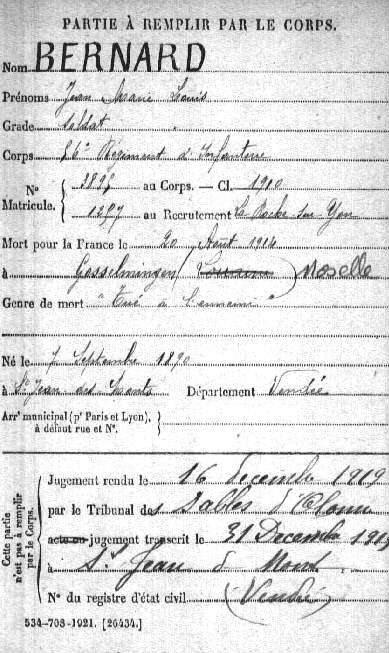 PARTIE À REMPLIR PAR LE CORPS.
Nom BERNARD
Prénoms Jean Marie Louis
Grade soldat
Corps Régiment d'Infanterie
N° Matricule. { au Corps. — Cl. 1910
1297 au Recrutement La Roche sur Yon
Mort pour la France le 20 Août 1914
à Gosselmingen (Lorraine) Moselle
Genre de mort "Tué à l'ennemi"
Né le 7 Septembre 1890
à St Jean des Monts Département Vendée
Arrt municipal (pr Paris et Lyon), à défaut rue et N°. }
Cette partie n'est pas à remplir par le Corps.
Jugement rendu le 16 decembre 1919
par le Tribunal des Sables d'Olonne
acte ou jugement transcrit le 31 Decembre 1919
à St Jean de Mont
N° du registre d'état civil (Vendée)
534-708-1921. [26434.]